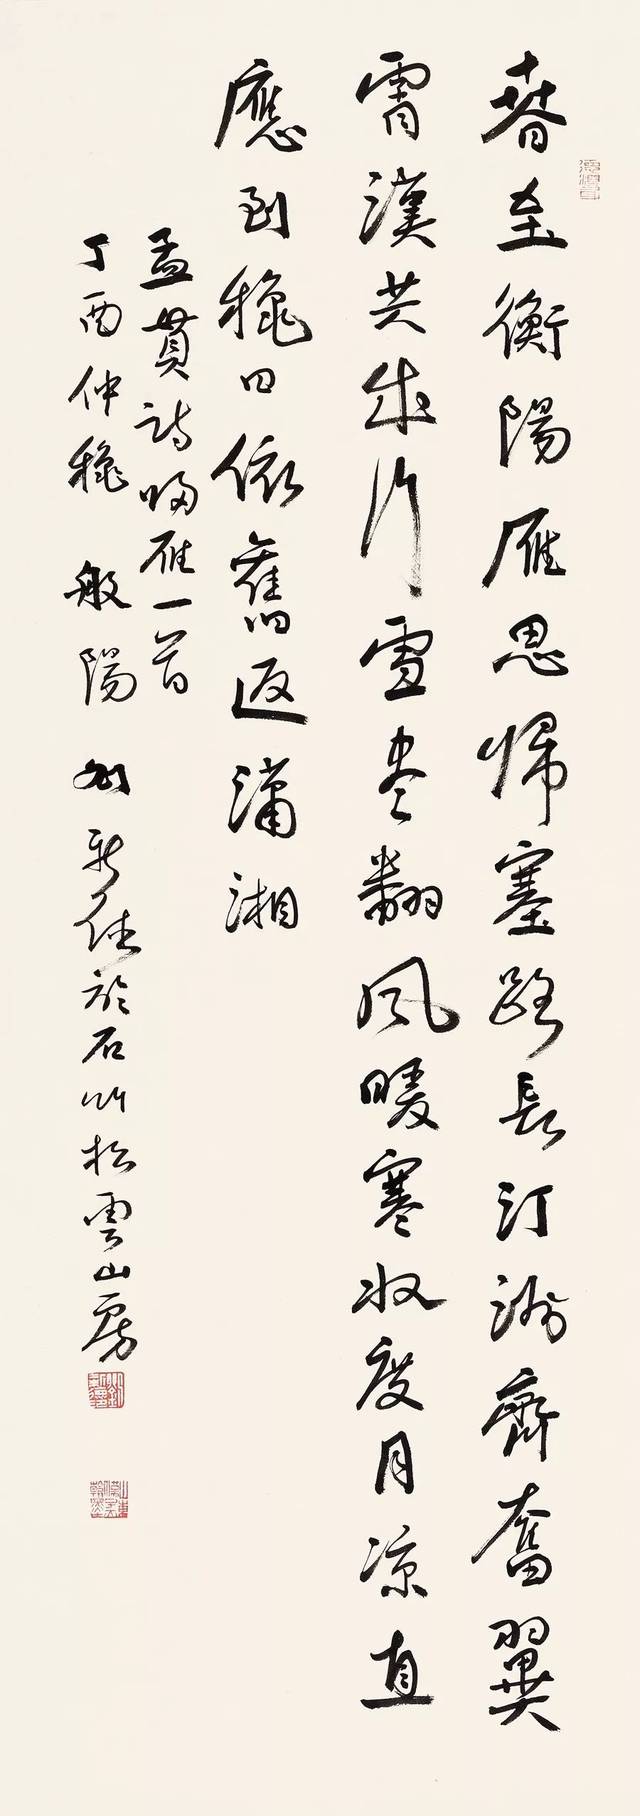 春至衡陽雁思歸塞路長汀洲齊奮翼
霄漢共成行雪盡翻風暖寒收度月涼直
應到秋日依舊返瀟湘
孟貫詩歸雁一首
丁酉仲秋 般陽 劉新德於石竹松雲山房